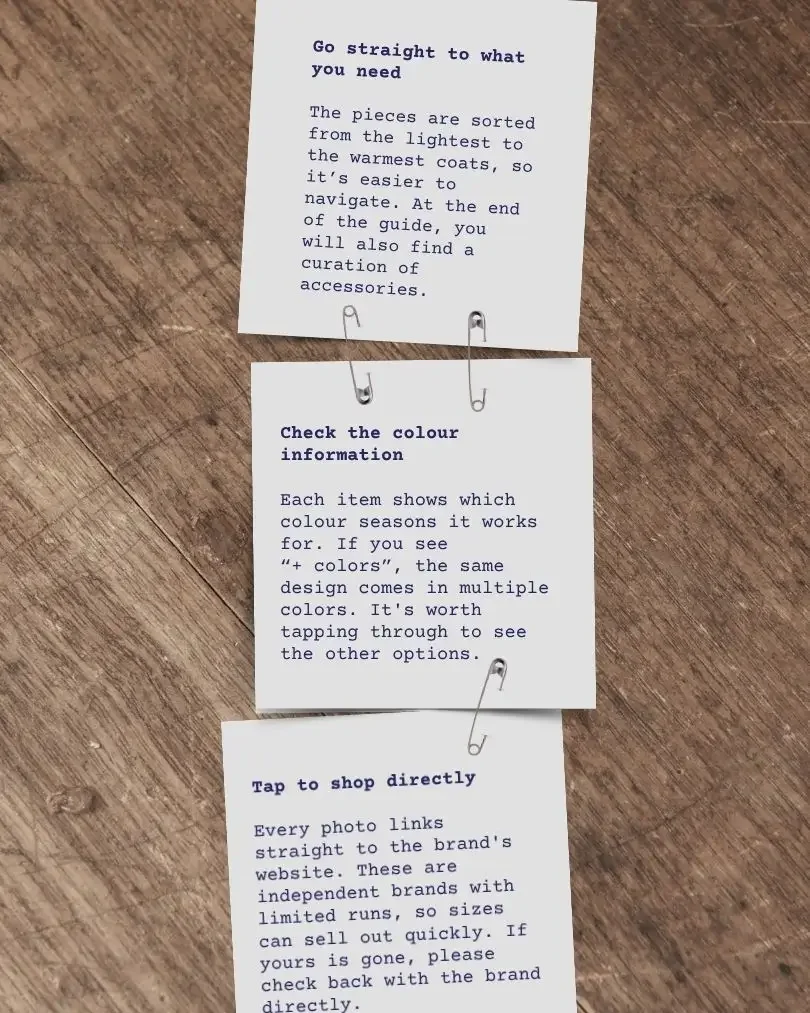 Go straight to what
you need
The pieces are sorted
from the lightest to
the warmest coats, so
it’s easier to
navigate. At the end
of the guide, you
will also find a
curation of
accessories.
Check the colour
information
Each item shows which
colour seasons it works
for. If you see
“+ colors”, the same
design comes in multiple
colors. It's worth
tapping through to see
the other options.
Tap to shop directly
Every photo links
straight to the brand's
website. These are
independent brands with
limited runs, so sizes
can sell out quickly. If
yours is gone, please
check back with the brand
directly.